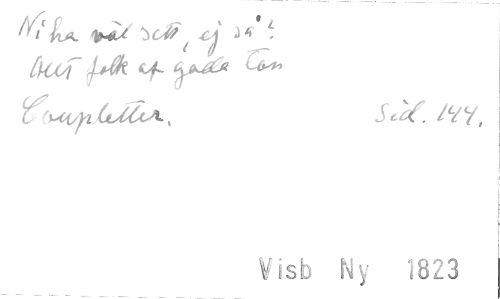 Ni ha väl sett, ej så?
Allt folk af goda ton
Coupletter. Sid. 144.
Visb Ny 1823